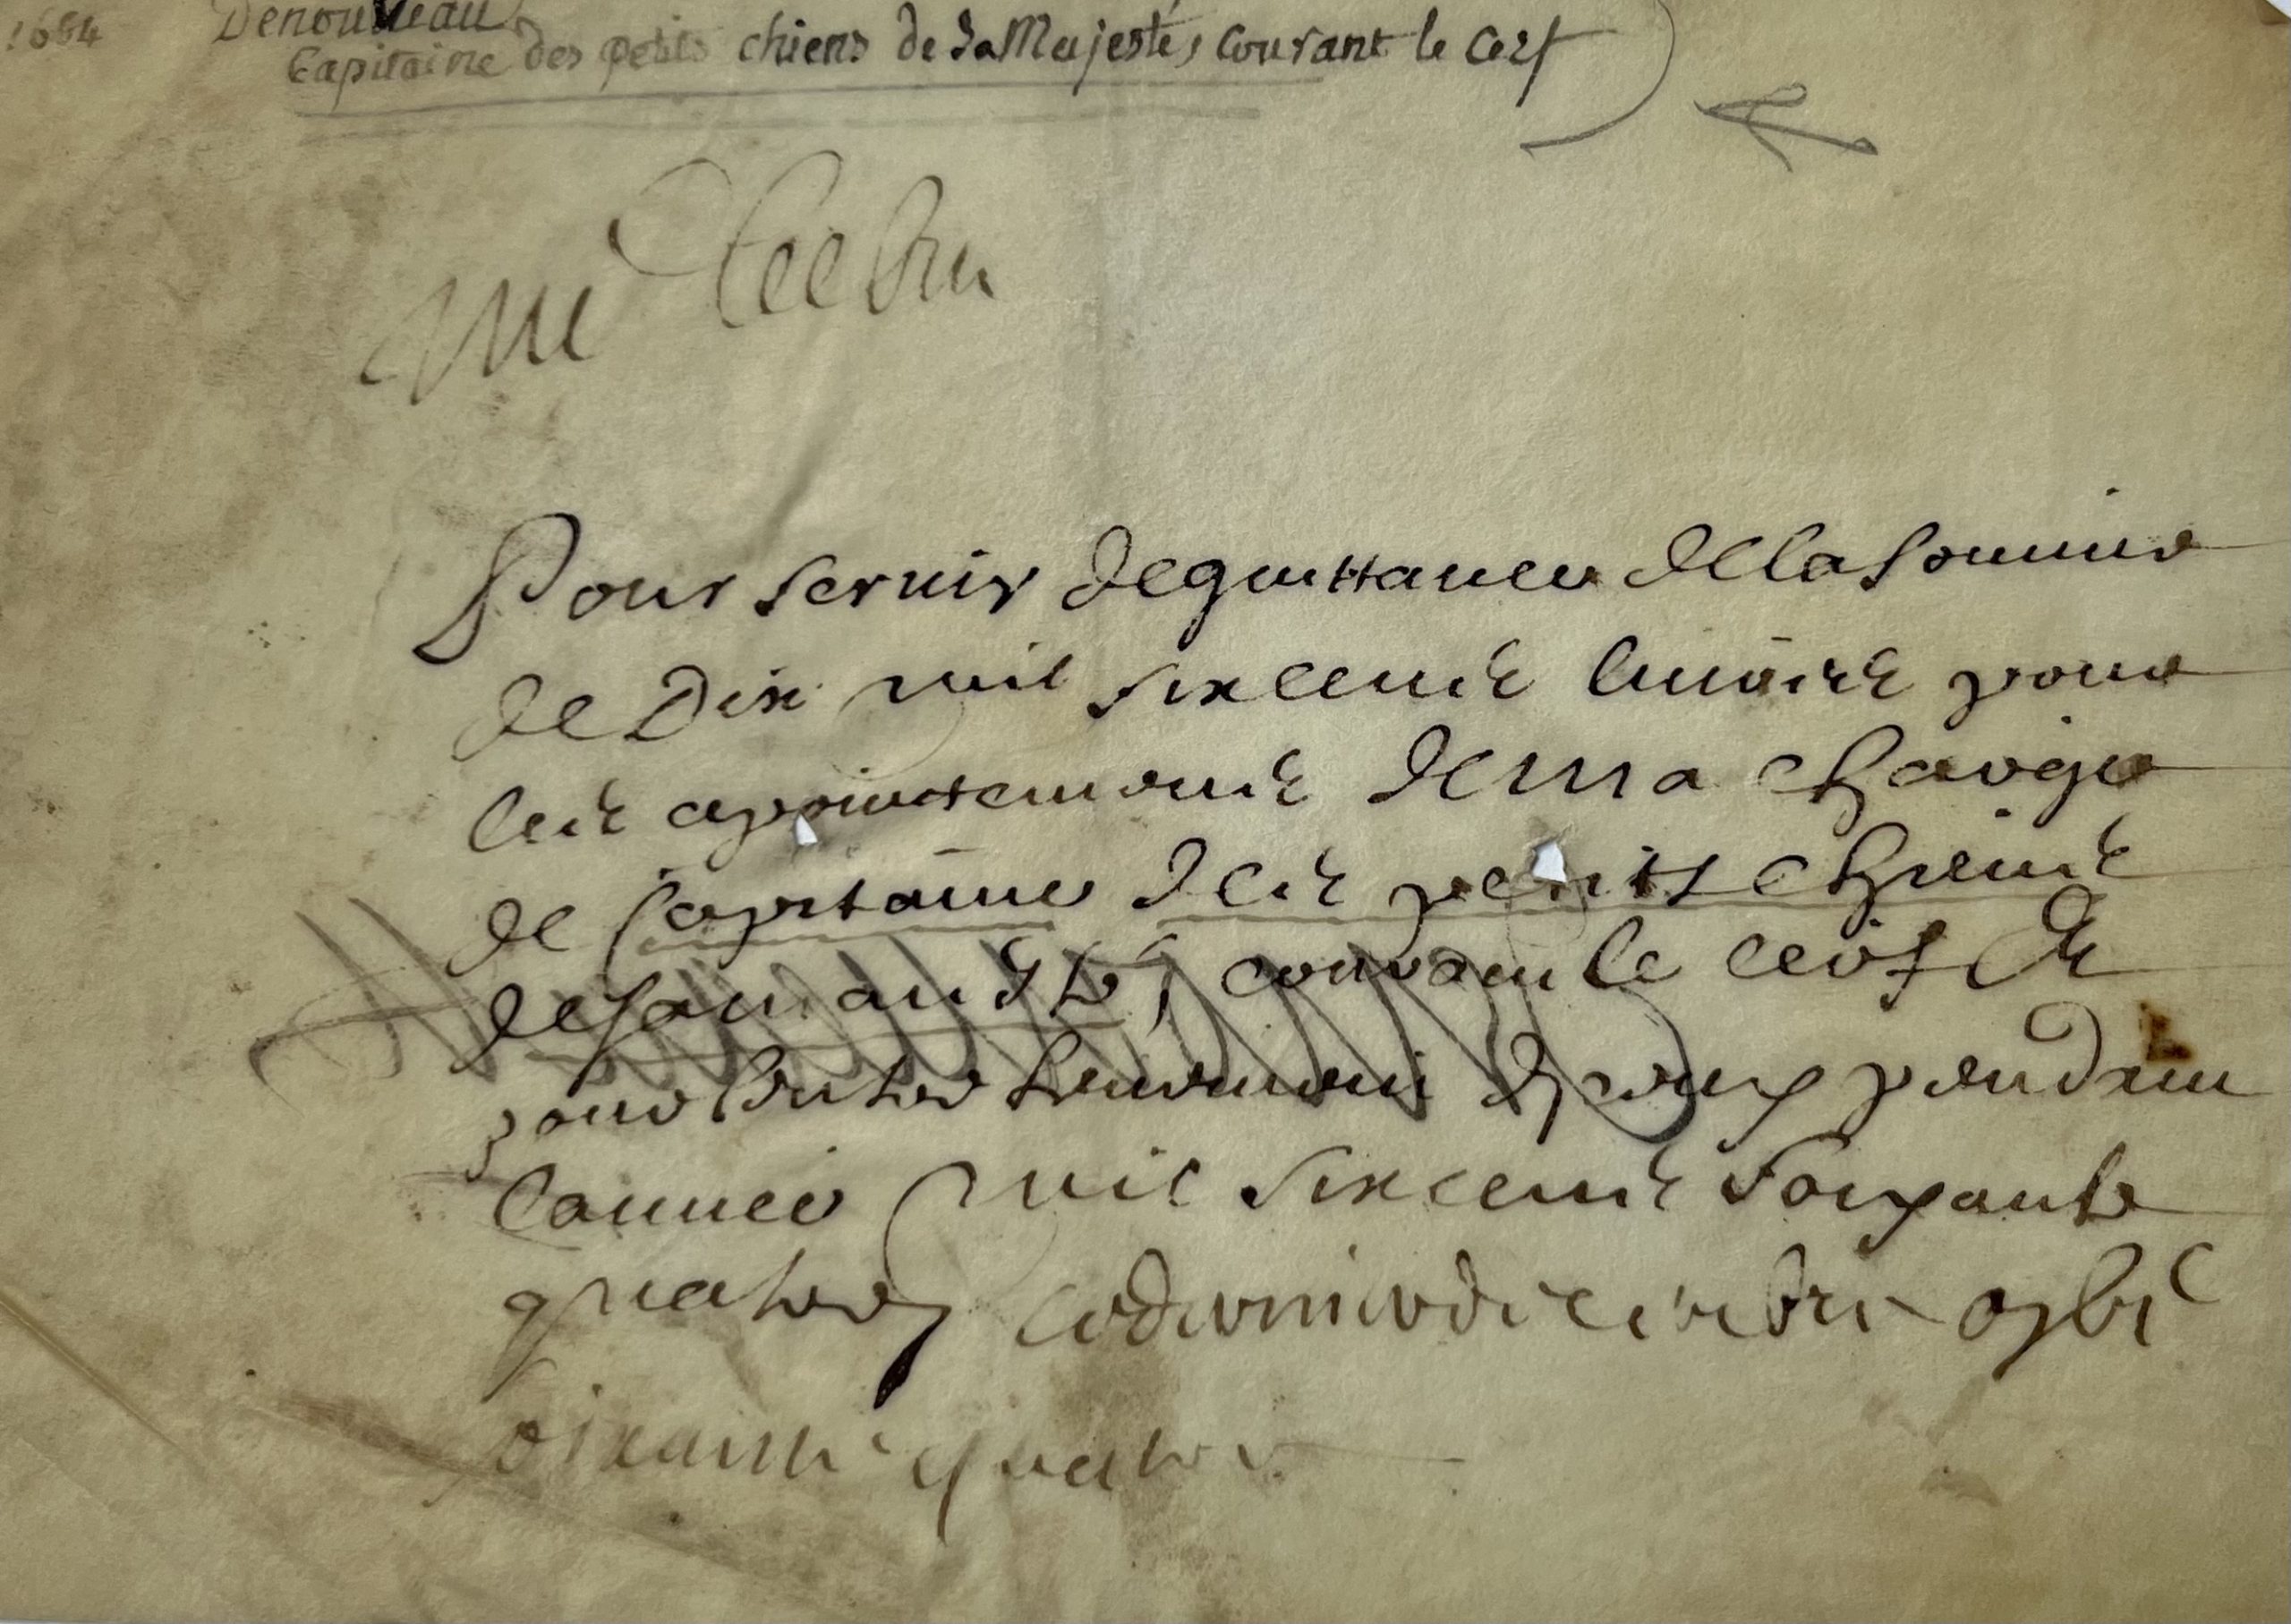 1664 Denouveau
Capitaine des petits chiens de Sa Majesté, courant le cerf
Pour seruir de quittance de la somme
de Dix mil six cents liures pour
les appointements de ma charge
de Capitaine des petits chiens
de sa majesté, courant le cerf Et
pour lentretenement diceux pendant
lannée mil six cents soixante
quatre
soixante quatre